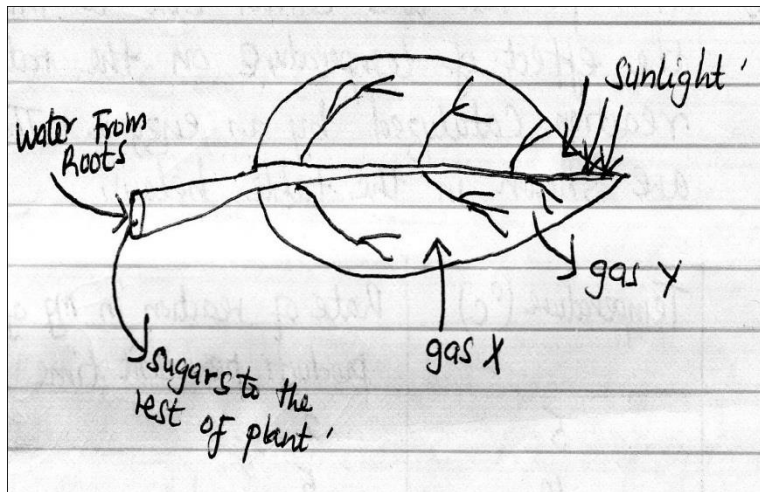 Sunlight'
Water From
Roots
gas Y
gas X
sugars to the
rest of plant'